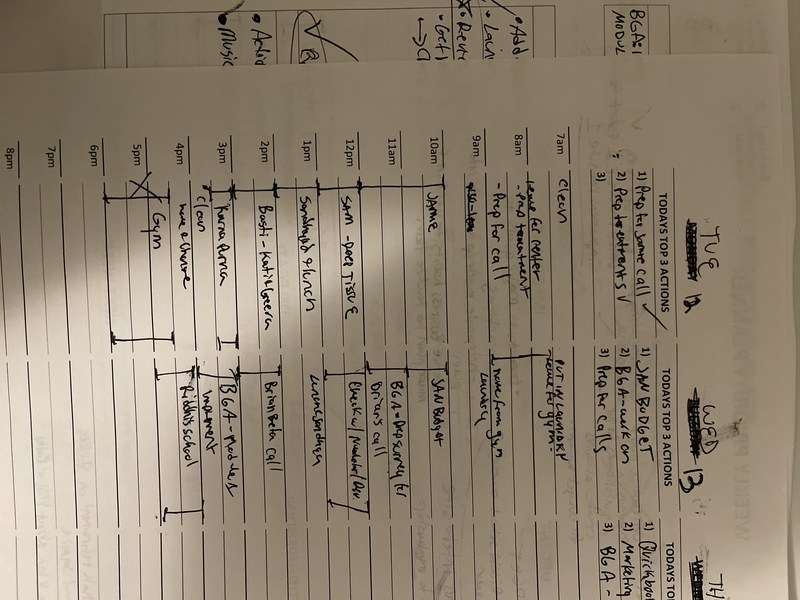 BGA:1
MODUL
• Add
• Laun
• Getı
• Activ
• Music
TUE 12
TODAYS TOP 3 ACTIONS
1) Prep for call ✓
2) Prep treatments ✓
3)
7am clean
8am leave for center
- Prep treatment
- Prep for call
9am
10am JAYME
11am
12pm SAM - DEEP TISSUE
1pm Sandhya & lunch
2pm Basti - Kati & Greeva
3pm Karna Purna
clean
4pm home & change
5pm Gym
6pm
7pm
8pm
WED 13
TODAYS TOP 3 ACTIONS
1) JAN BUDGET
2) BGA - work on
3) Prep for calls
PUT IN LAUNDRY
leave for gym
home from gym
Laundry
JAN Budget
BGA - Prep survey for
Brian's call
Check w/
Brian Beta call
BGA - Module 1
Riddhi's school
TH
TODAYS TO
1) Quickbook
2) Marketing
3) BGA -